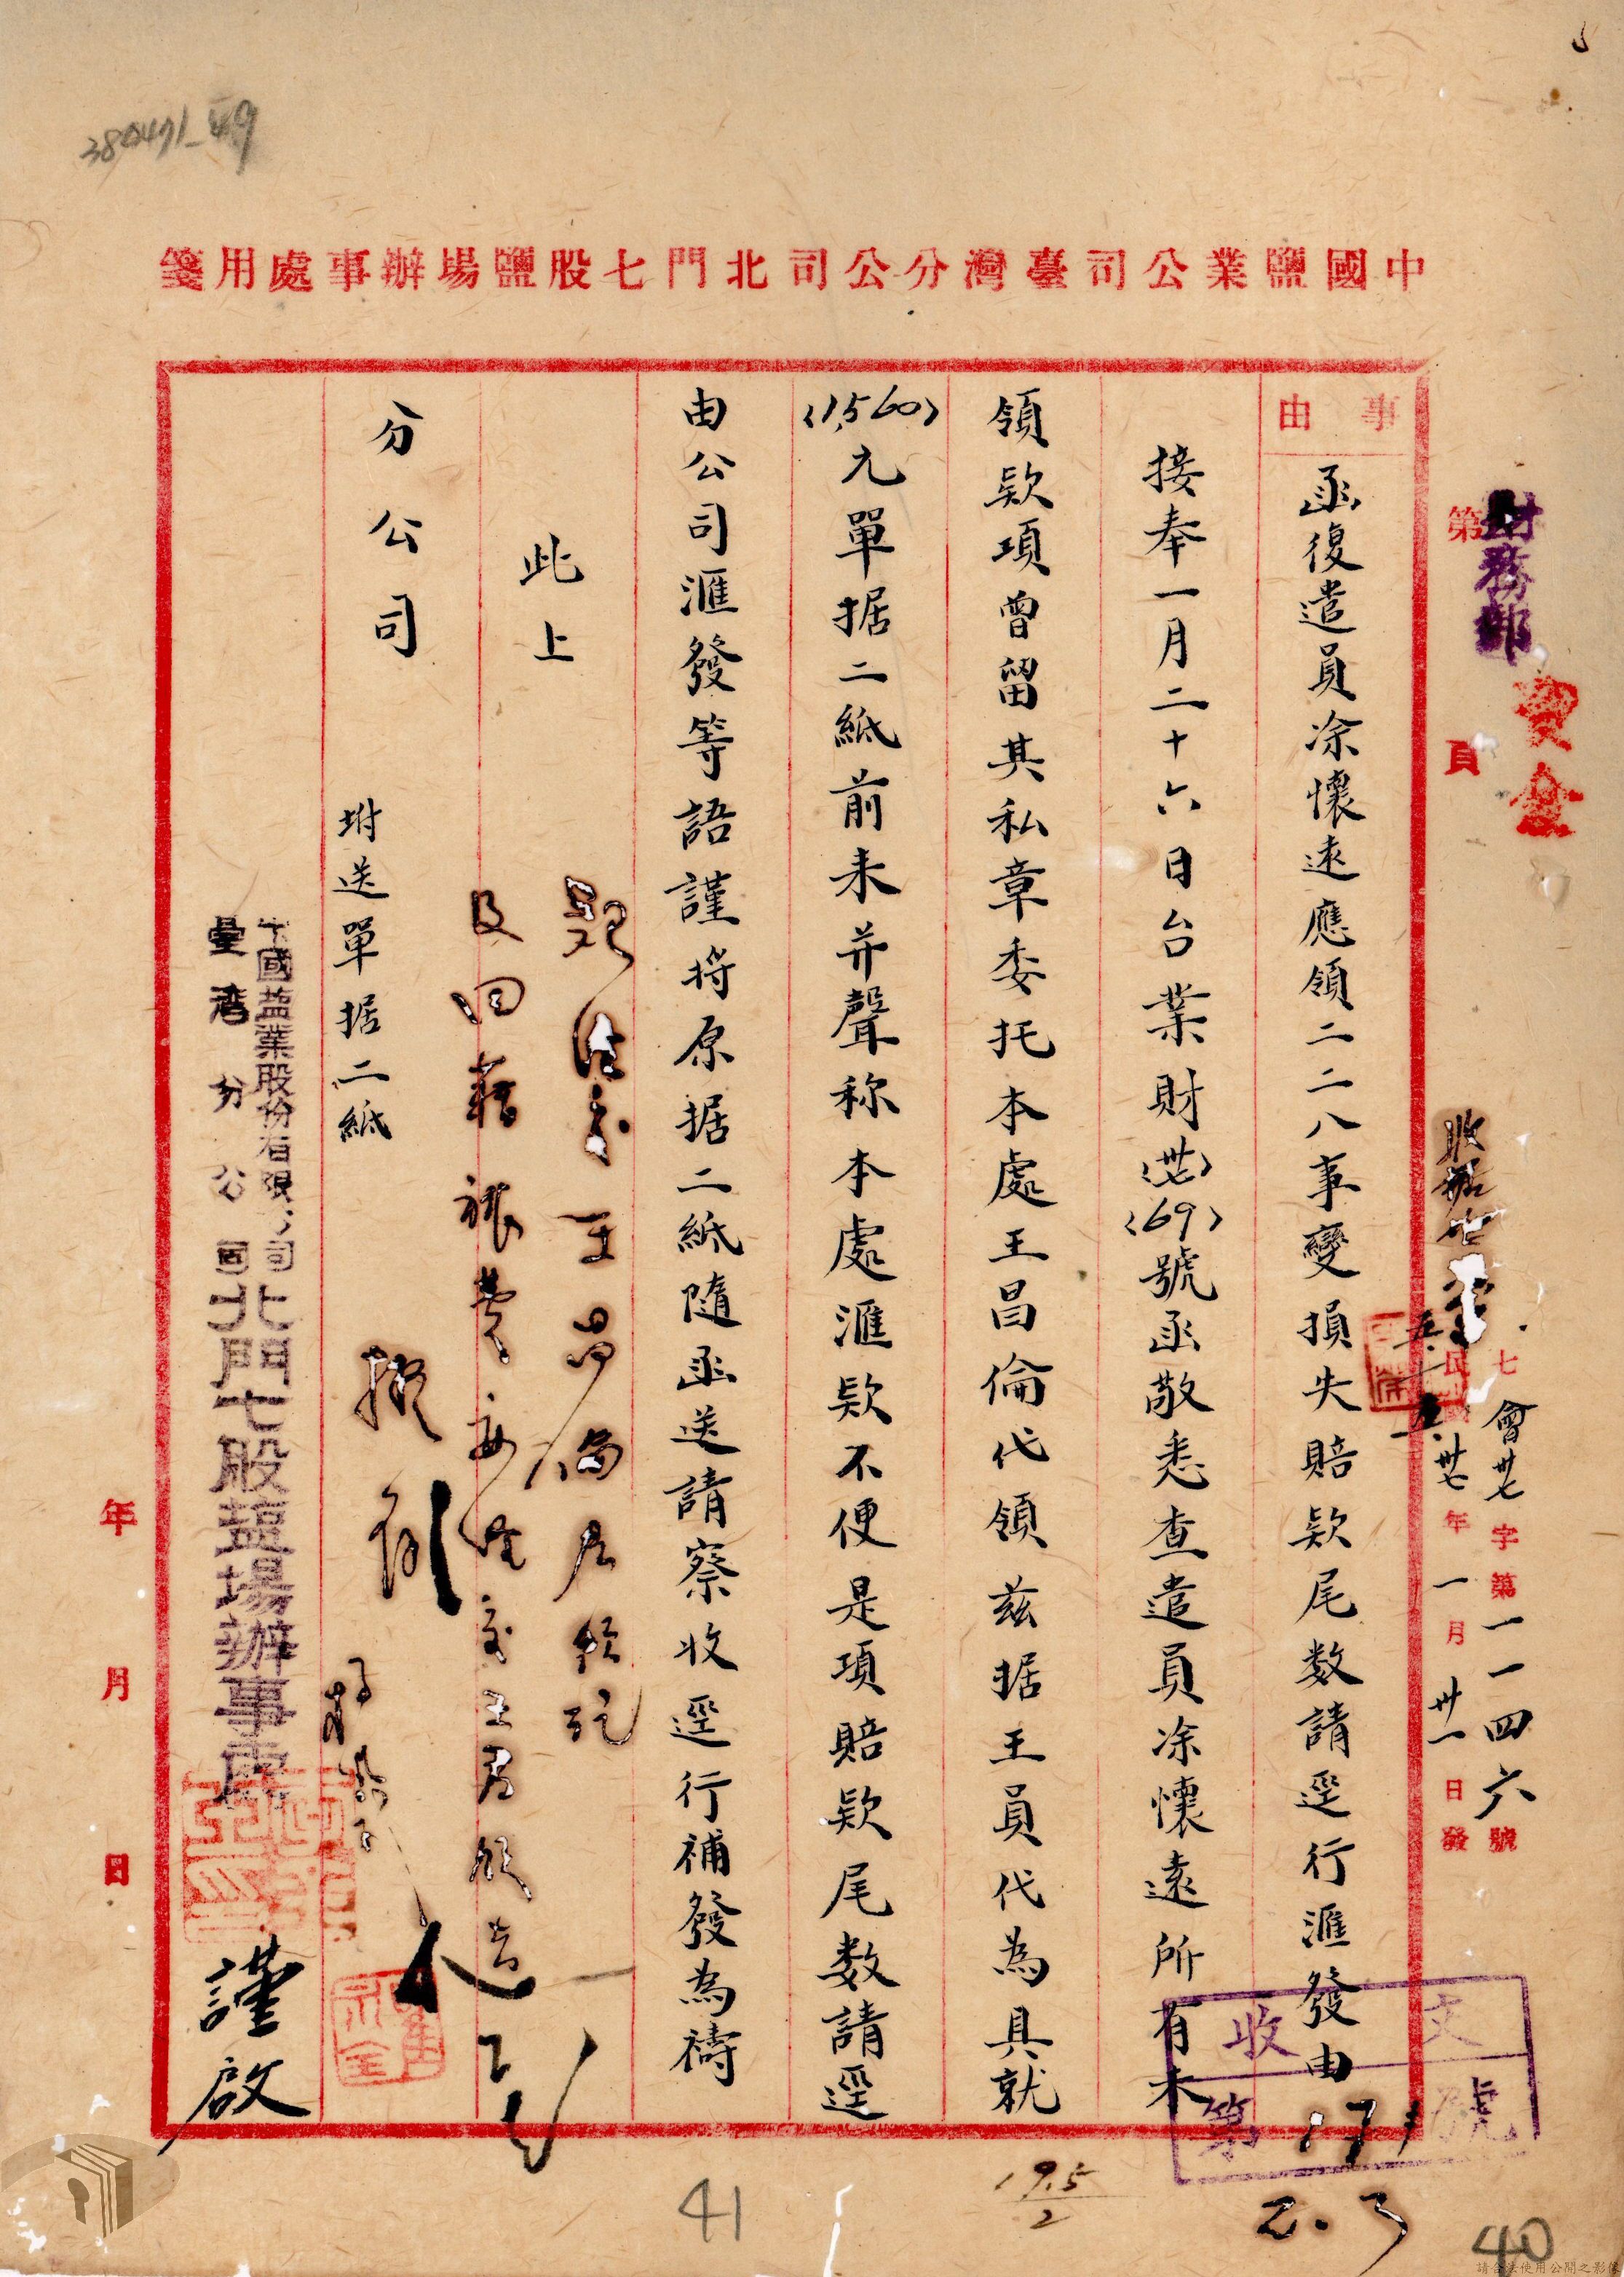 380471_49
中國鹽業公司臺灣分公司北門七股鹽場辦事處用箋
財務部
第 頁
七會卅七字第一一四六號
民國卅七年一月卅一日發
事由
函復遣員凃懷遠應領二二八事變損失賠欵尾数請逕行滙發由
接奉一月二十六日台業財(卅七)(69)號函敬悉查遣員凃懷遠所有未
領欵項曾留其私章委托本處王昌倫代領茲据王員代為具就
(1,560)元單据二紙前来并聲称本處滙欵不便是項賠欵尾数請逕
由公司滙發等語謹将原据二紙隨函送請察收逕行補發為禱
此上
分公司
坿送單据二紙
中國盐業股份有限公司
臺灣分公司
北門七股盐場辦事處
謹啟
年 月 日
收文
第 號
171
2.3
19.5
2
41
40
請合法使用公開之影像